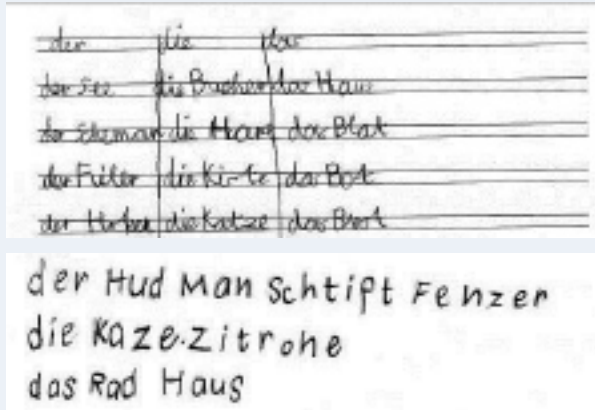 der die das
der See die Bucher das Haus
der die das Blat
der Füller die das Bot
der die Katze das Brot
der Hud Man Schtift Fenzer
die Kaze. Zitrohe
das Rad Haus